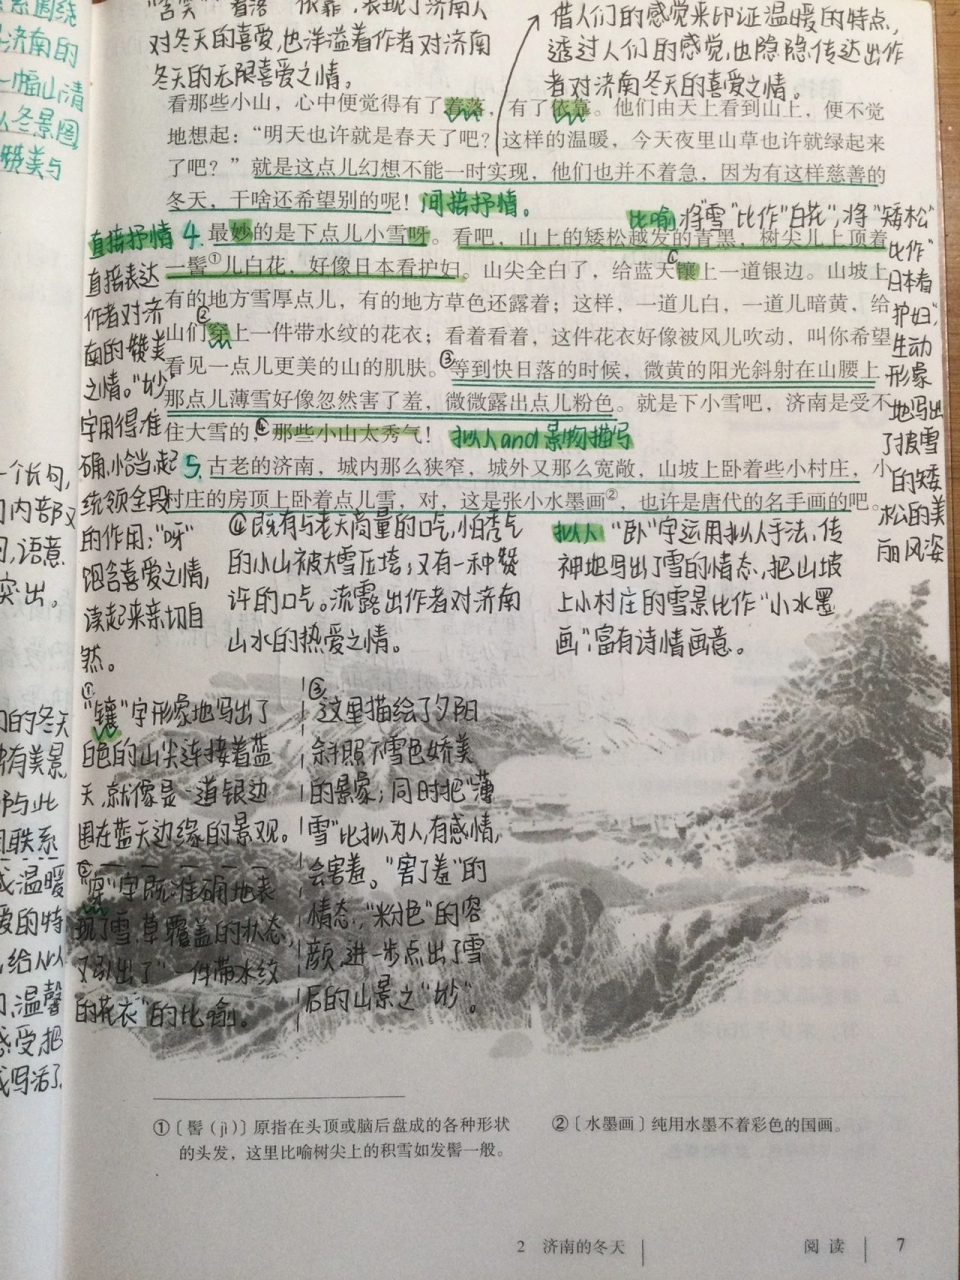 对冬天的喜爱,也洋溢着作者对济南
冬天的无限喜爱之情。
借人们的感觉来印证温暖的特点,
透过人们的感觉,也隐隐传达出作
者对济南冬天的喜爱之情。
看那些小山，心中便觉得有了着落，有了依靠。他们由天上看到山上，便不觉
地想起：“明天也许就是春天了吧？这样的温暖，今天夜里山草也许就绿起来
了吧？”就是这点儿幻想不能一时实现，他们也并不着急，因为有这样慈善的
冬天，干啥还希望别的呢！
间接抒情。
比喻,将“雪”比作“白花”;将“矮松”
比作“
日本看
护妇”,
生动
形象
地写出
了披雪
的矮
松的美
丽风姿
直接抒情
4.最妙的是下点儿小雪呀。看吧，山上的矮松越发的青黑，树尖儿上顶着
一髻①儿白花，好像日本看护妇。山尖全白了，给蓝天①镶上一道银边。山坡上，
有的地方雪厚点儿，有的地方草色还露着；这样，一道儿白，一道儿暗黄，给
山们②穿上一件带水纹的花衣；看着看着，这件花衣好像被风儿吹动，叫你希望
看见一点儿更美的山的肌肤。③等到快日落的时候，微黄的阳光斜射在山腰上，
那点儿薄雪好像忽然害了羞，微微露出点儿粉色。就是下小雪吧，济南是受不
住大雪的，④那些小山太秀气！
拟人and景物描写
5.古老的济南，城内那么狭窄，城外又那么宽敞，山坡上卧着些小村庄，小
村庄的房顶上卧着点儿雪，对，这是张小水墨画②，也许是唐代的名手画的吧。
直接表达
作者对济
南的赞美
之情。“妙”
字用得准
确,恰当,起
统领全段
的作用;“呀”
饱含喜爱之情,
读起来亲切自
然。
④既有与老天商量的口气,怕秀气
的小山被大雪压垮;又有一种赞
许的口气。流露出作者对济南
山水的热爱之情。
拟人 “卧”字运用拟人手法,传
神地写出了雪的情态,把山坡
上小村庄的雪景比作“小水墨
画”,富有诗情画意。
①
“镶”字形象地写出了
白色的山尖连接着蓝
天,就像是一道银边
围在蓝天边缘的景观。
②
“穿”字既准确地表
现了雪,草覆盖的状态,
又引出了“一件带水纹
的花衣”的比喻。
③
这里描绘了夕阳
斜照下雪色娇美
的景象;同时把“薄
雪”比拟为人,有感情,
会害羞。“害了羞”的
情态,“粉色”的容
颜,进一步点出了雪
后的山景之“妙”。
①〔髻（jì）〕原指在头顶或脑后盘成的各种形状
的头发，这里比喻树尖上的积雪如发髻一般。
②〔水墨画〕纯用水墨不着彩色的国画。
2 济南的冬天
阅读
7